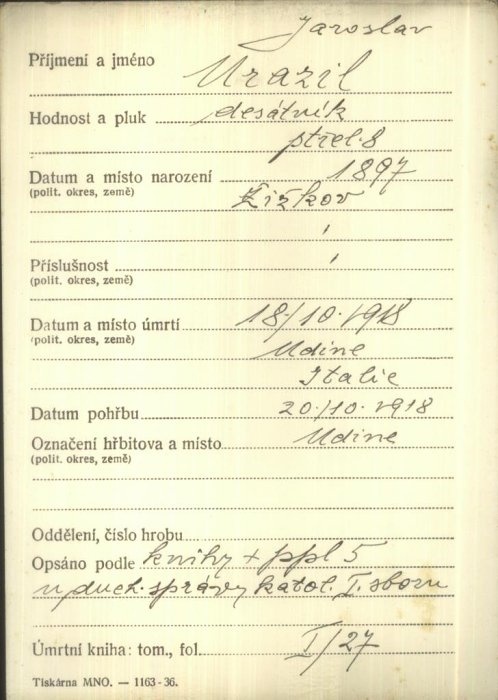 Jaroslav
Příjmení a jméno Urazil
Hodnost a pluk desátník
střel. 8
Datum a místo narození 1897
(polit. okres, země) Žižkov
Příslušnost
(polit. okres, země)
Datum a místo úmrtí 18/10. 1918
(polit. okres, země) Udine
Italie
Datum pohřbu 20./10. 1918
Označení hřbitova a místo Udine
(polit. okres, země)
Oddělení, číslo hrobu
Opsáno podle knihy + ppl 5
u duch. správy katol. I. sboru
Úmrtní kniha: tom., fol. I/27
Tiskárna MNO. — 1163-36.